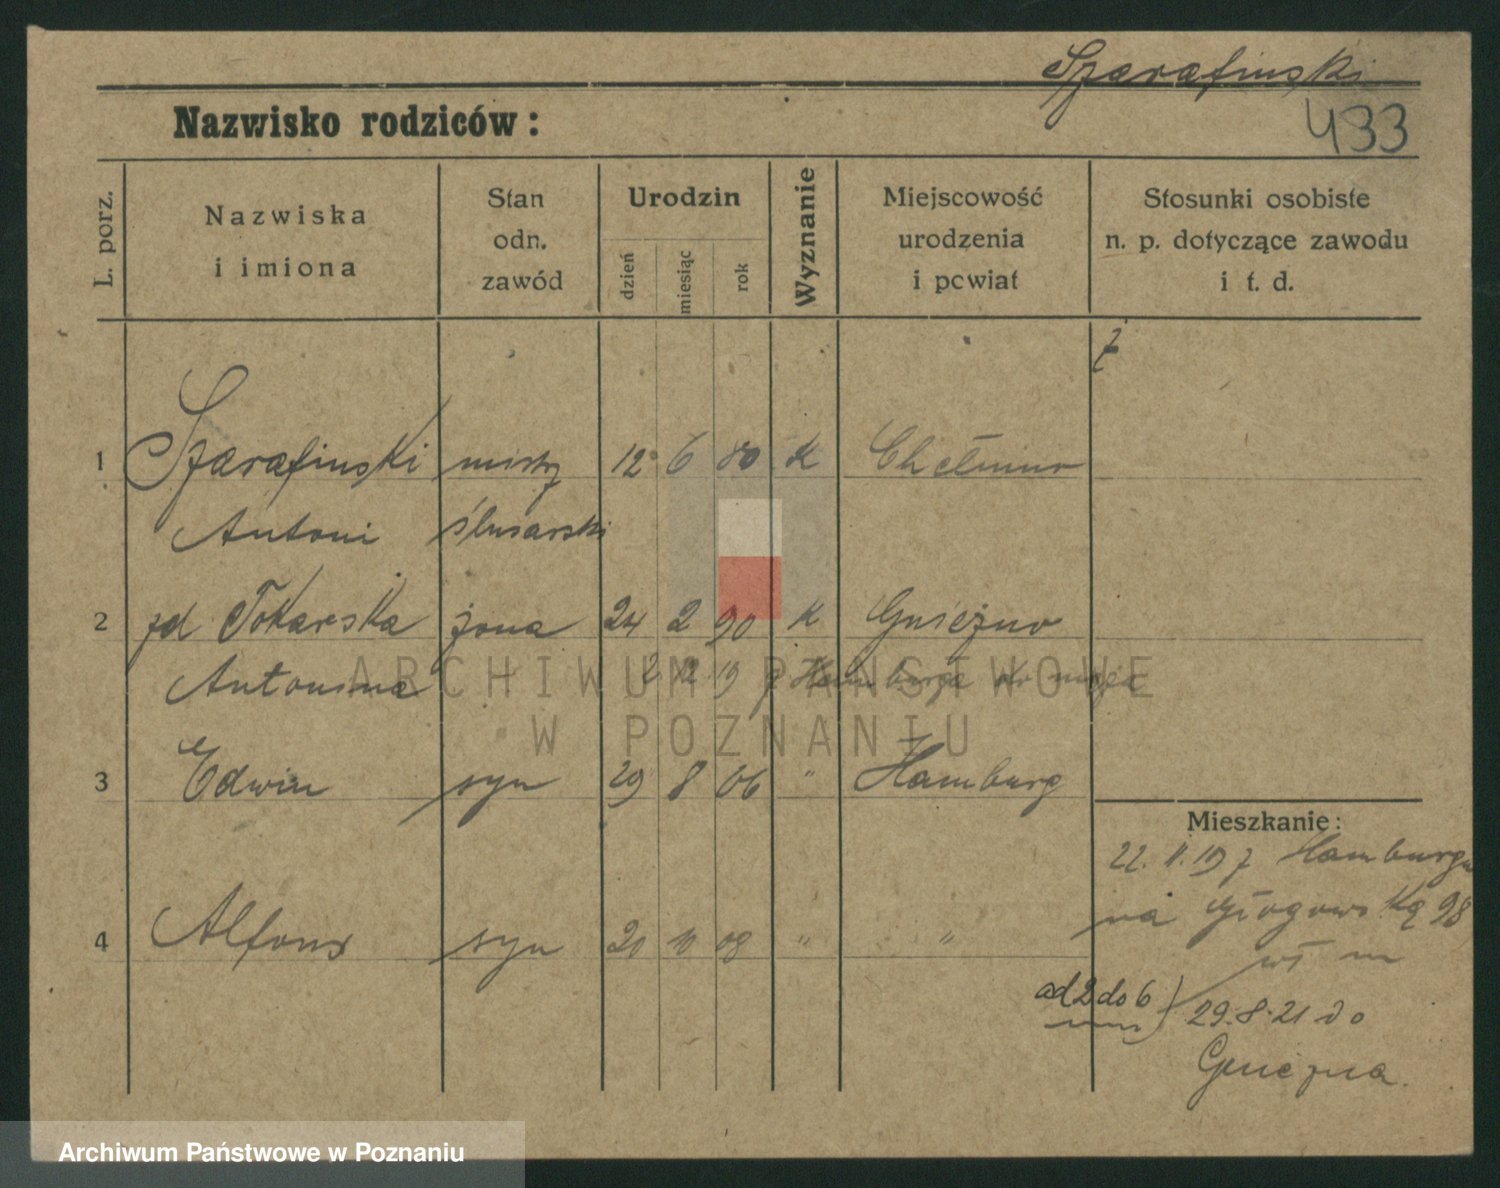 Szarafinski
Nazwisko rodziców:
433
L. porz.
Nazwiska
i imiona
Stan
odn.
zawód
Urodzin
dzień
miesiąc
rok
Wyznanie
Miejscowość
urodzenia
i powiat
Stosunki osobiste
n. p. dotyczące zawodu
i t. d.
1 Szarafinski mistrz 12 6 80 K Chełmno
Antoni ślusarski
2 zd Tokarska żona 24 2 90 K Gniezno
Antonina
3 Edwin syn 29 8 06 " Hamburg
4 Alfons syn 21 10 08 " "
Mieszkanie:
22. II. 19 z Hamburga
na Głogowską 98
wł m
od 2 do 6 29.8.21 do
Gniezna.
ARCHIWUM PAŃSTWOWE
W POZNANIU
Archiwum Państwowe w Poznaniu